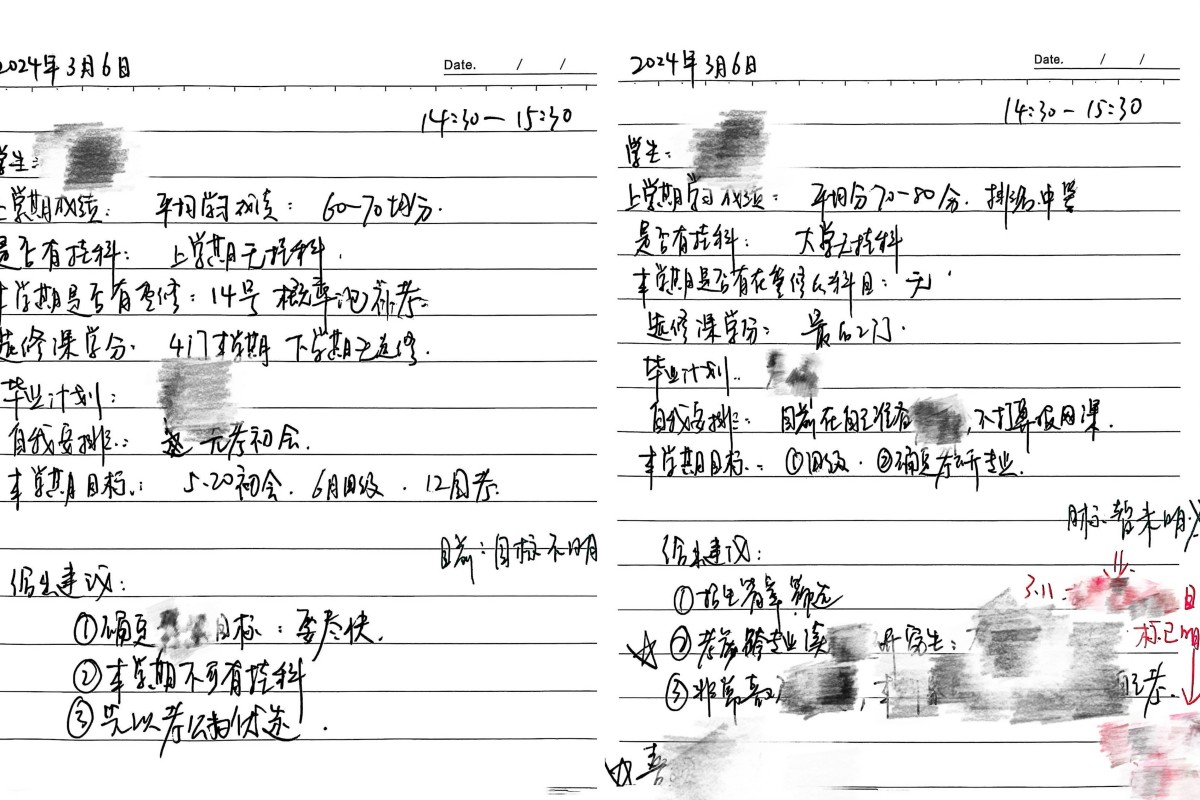 2024年3月6日
Date. / /
14:30—15:30
学生:
上学期成绩: 平均学习成绩: 60—70均分.
是否有挂科: 上学期无挂科.
本学期是否有重修: 14号 概率论补考.
选修课学分: 4门本学期 下学期无选修.
毕业计划:
自我安排: 考初会.
本学期目标: 5.20初会. 6月四级. 12国考.
目前:目标不明
给出建议:
①确定 目标:要尽快.
②本学期不可有挂科
③先以考公为优选.
2024年3月6日
Date. / /
14:30—15:30
学生:
上学期学习成绩: 平均分70—80分. 排名中等
是否有挂科: 大学无挂科
本学期是否有在重修的科目: 无.
选修课学分: 最后2门.
毕业计划:
自我安排: 目前在自主准备 ,不打算报网课.
本学期目标: ①四级. ②确定考研专业.
目标暂未明
给出建议:
①招生简章
3.11: 目
②考虑跨专业读 研究生:
标已明
③非常喜 考.
喜